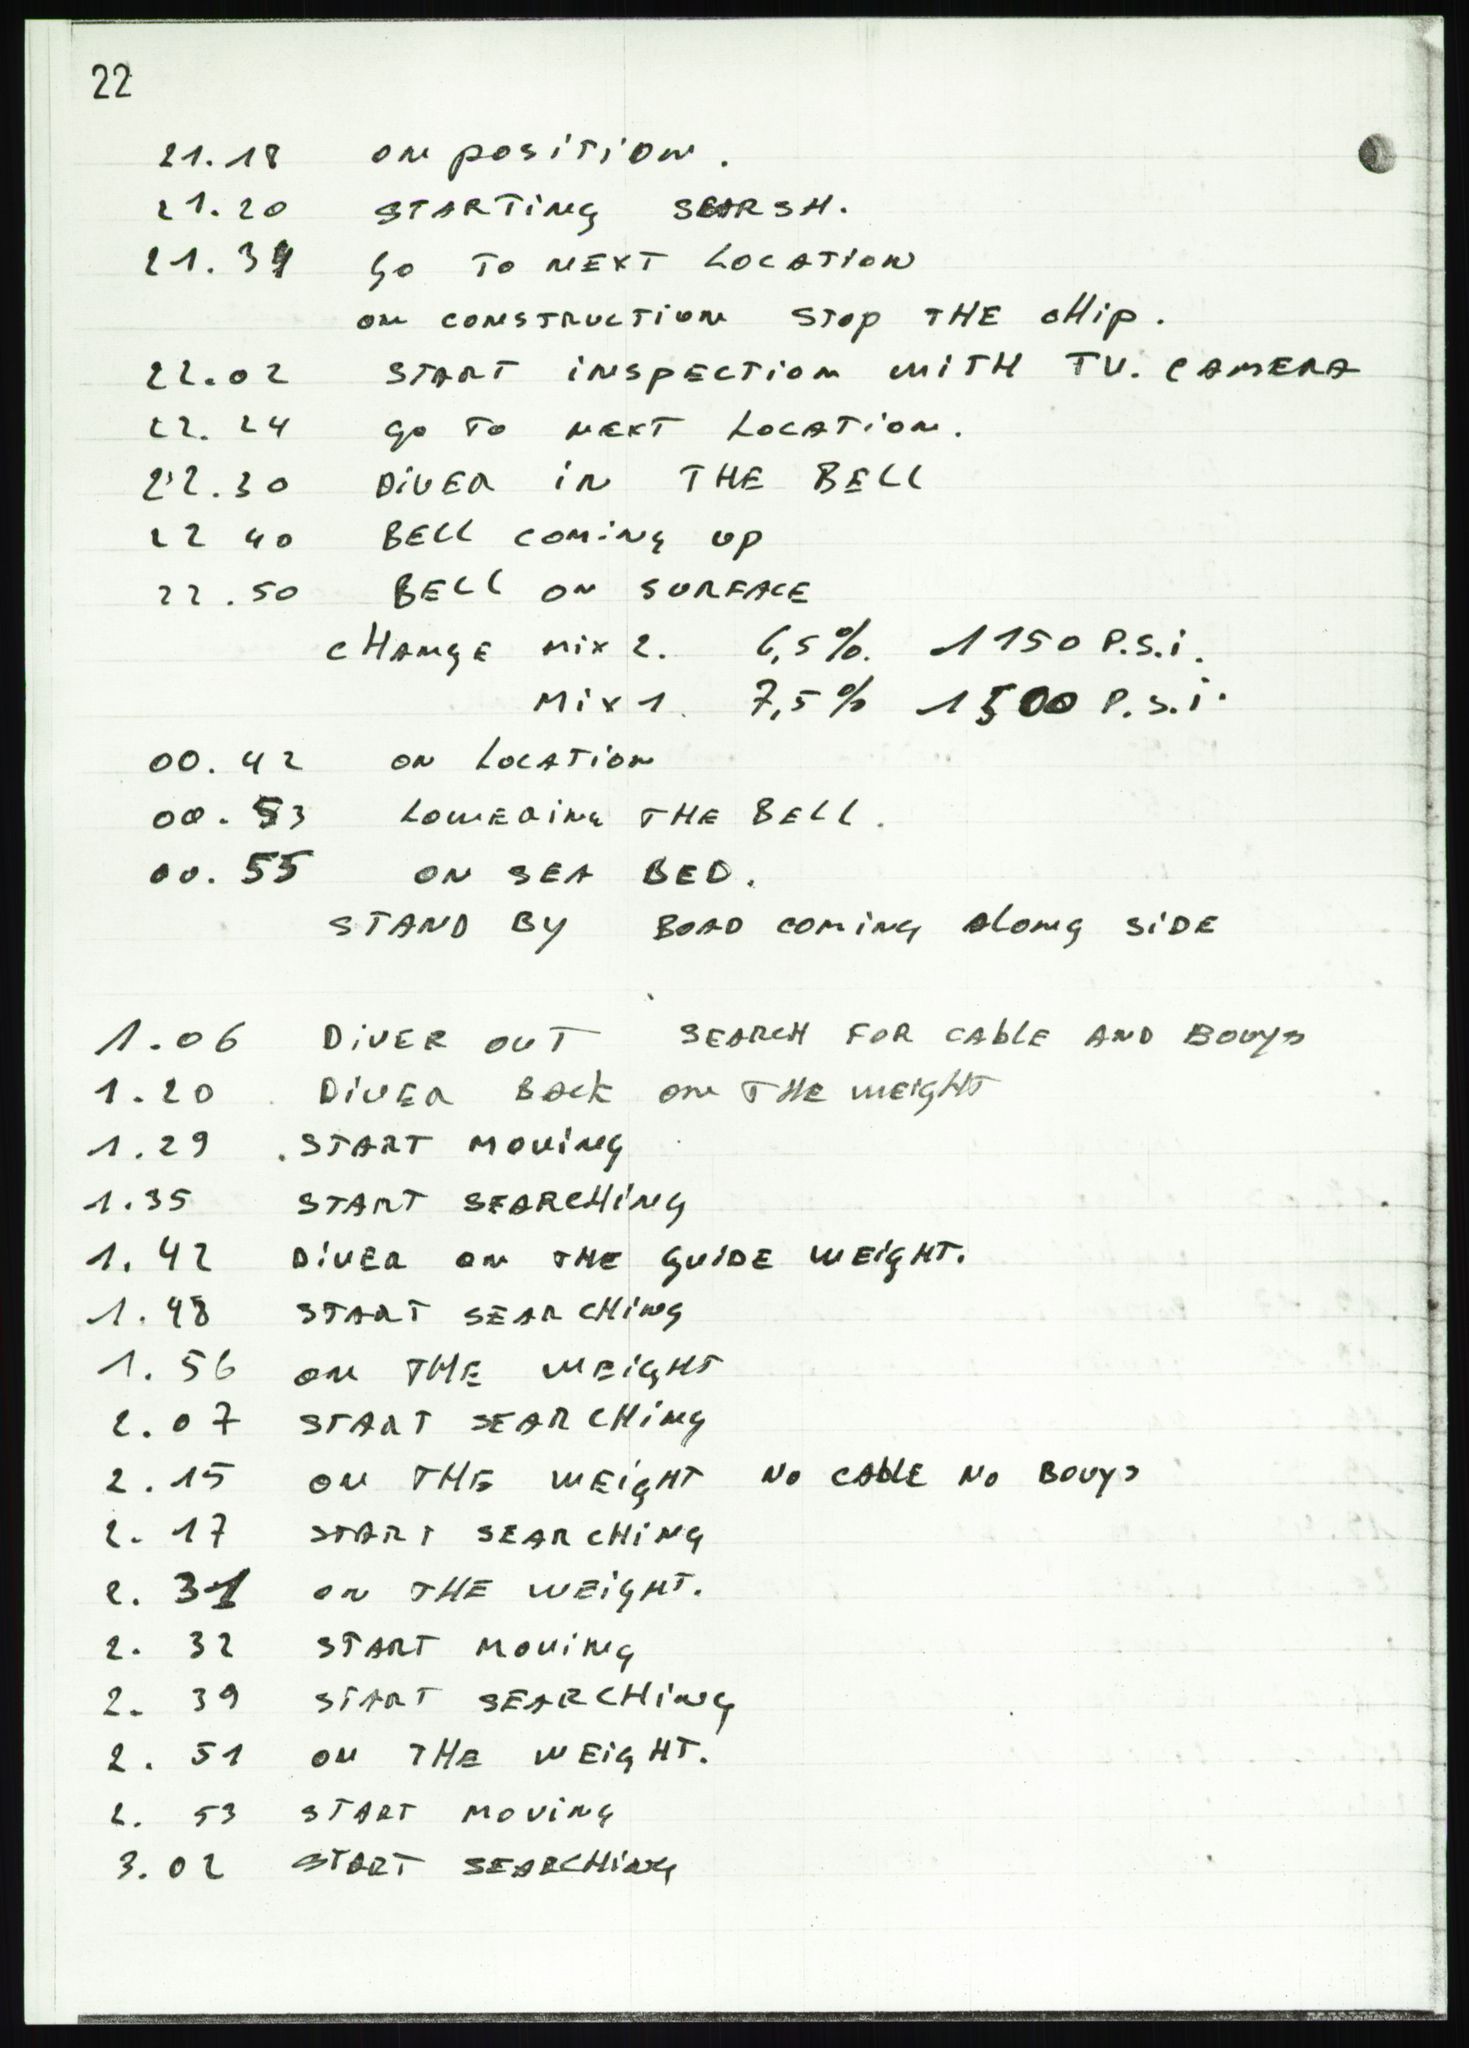 22
21.18 on position.
21.20 STARTING SEARSH.
21.39 go TO NEXT LOCATION
on CONSTRUCTION STOP THE cHip.
22.02 START inSPECTION WITH TV. CAMERA
22.24 go TO NEXT LOCATION.
22.30 DIVER in THE BELL
22 40 BELL COMING UP
22.50 BELL ON SURFACE
CHANGE Mix 2. 6,5%. 1150 P.S.i.
Mix 1. 7,5% 1500 P.S.i.
00.42 ON LOCATION
00.53 LOWERING THE BELL.
00.55 ON SEA BED.
STAND BY BOAD COMING ALONG SIDE
1.06 DIVER OUT SEARCH FOR CABLE AND BOUYS
1.20 DIVER BACK ON THE WEIGHT
1.29 .START MOVING
1.35 START SEARCHING
1.42 DIVER ON THE GUIDE WEIGHT.
1.48 START SEARCHING
1.56 ON THE WEIGHT
2.07 START SEARCHING
2.15 ON THE WEIGHT NO CABLE NO BOUYS
2.17 START SEARCHING
2.31 ON THE WEIGHT.
2.32 START MOVING
2.39 START SEARCHING
2.51 ON THE WEIGHT.
2.53 START MOVING
3.02 START SEARCHING